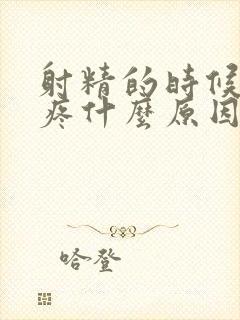 射精的時候
疼什麼原因
哈登